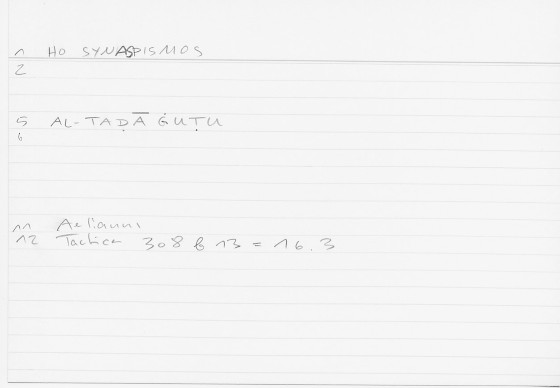 1 HO SYNASPISMOS
2
5 AL-TAḌĀĠUṬU
6
11 Aelianus
12 Tactica 308 b 13 = 16.3